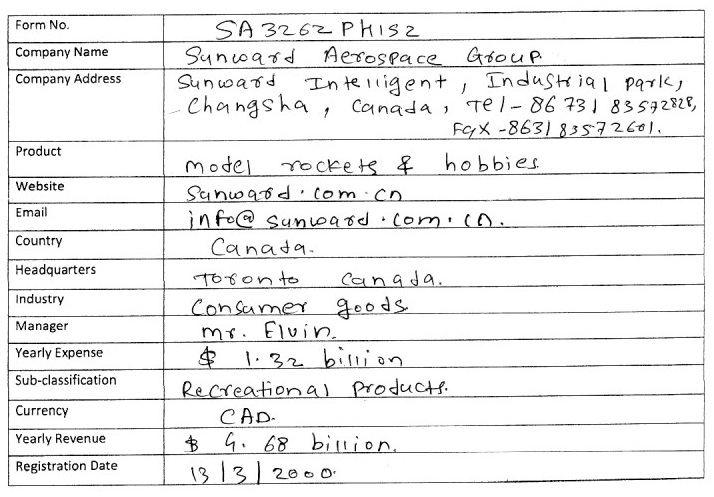 Form No. SA3262PHIS2
Company Name Sunward Aerospace Group.
Company Address Sunward Intelligent, Industrial park,
Changsha, Canada, Tel-86 731 83572828,
Fax-8631 83572601.
Product model rockets & hobbies
Website Sunward.com.cn
Email info@sunward.com.cn.
Country Canada.
Headquarters Toronto Canada.
Industry Consumer goods
Manager mr. Elvin.
Yearly Expense $ 1.32 billion
Sub-classification Recreational Products.
Currency CAD.
Yearly Revenue $ 9.68 billion.
Registration Date 13/3/2000.